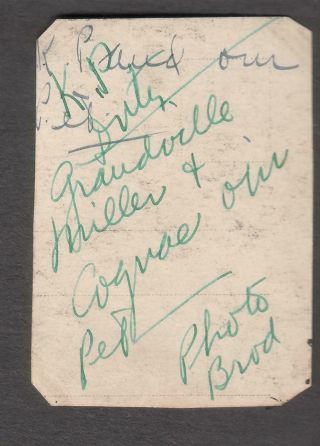 K. P. and our
Pet
K. P.
Duty
Grandville
Miller &
Cognac our
Pet
Photo
Brod